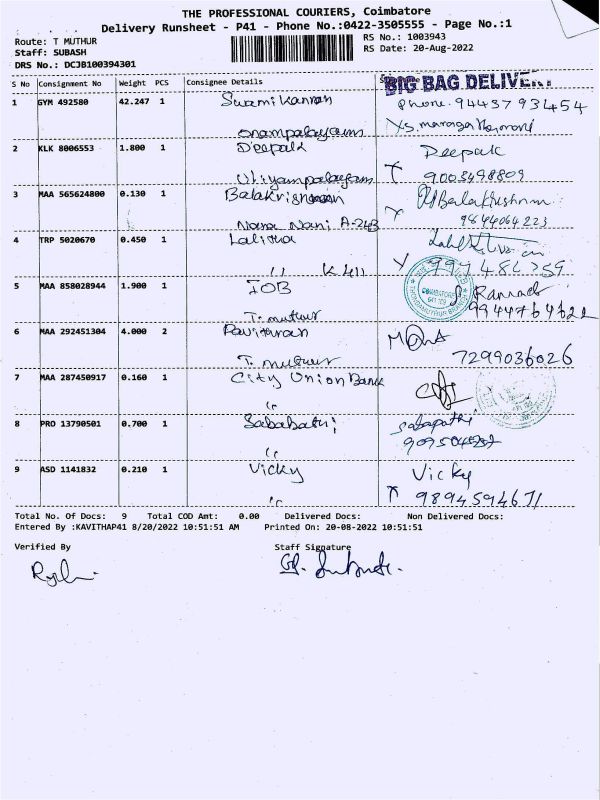 THE PROFESSIONAL COURIERS, Coimbatore
Delivery Runsheet - P41 - Phone No.:0422-3505555 - Page No.:1
Route: T MUTHUR
RS No.: 1003943
Staff: SUBASH
RS Date: 20-Aug-2022
DRS No.: DCJB100394301
S No Consignment No Weight PCS Consignee Details
BIG BAG DELIVERY
1 GYM 492580 42.247 1 Swamikannan Phone. 9443793454
onampalayam
2 KLK 8006553 1.800 1 Deepak Deepak
Uliyampalayam 9003498809
3 MAA 565624800 0.130 1 Balakrishnan Balakrishnan
Nana Nani A-243 9844064223
4 TRP 5020670 0.450 1 Lalitha
" K411
5 MAA 858028944 1.900 1 IOB
COIMBATORE
T. muthur
6 MAA 292451304 4.000 2 Pavithran
T. muthur 7299036026
7 MAA 287450917 0.160 1 City Union Bank
"
8 PRO 13790501 0.700 1 Sababathi Sabapathi
"
9 ASD 1141832 0.210 1 Vicky Vicky
" 9894594671
Total No. Of Docs: 9 Total COD Amt: 0.00 Delivered Docs: Non Delivered Docs:
Entered By :KAVITHAP41 8/20/2022 10:51:51 AM Printed On: 20-08-2022 10:51:51
Verified By Staff Signature